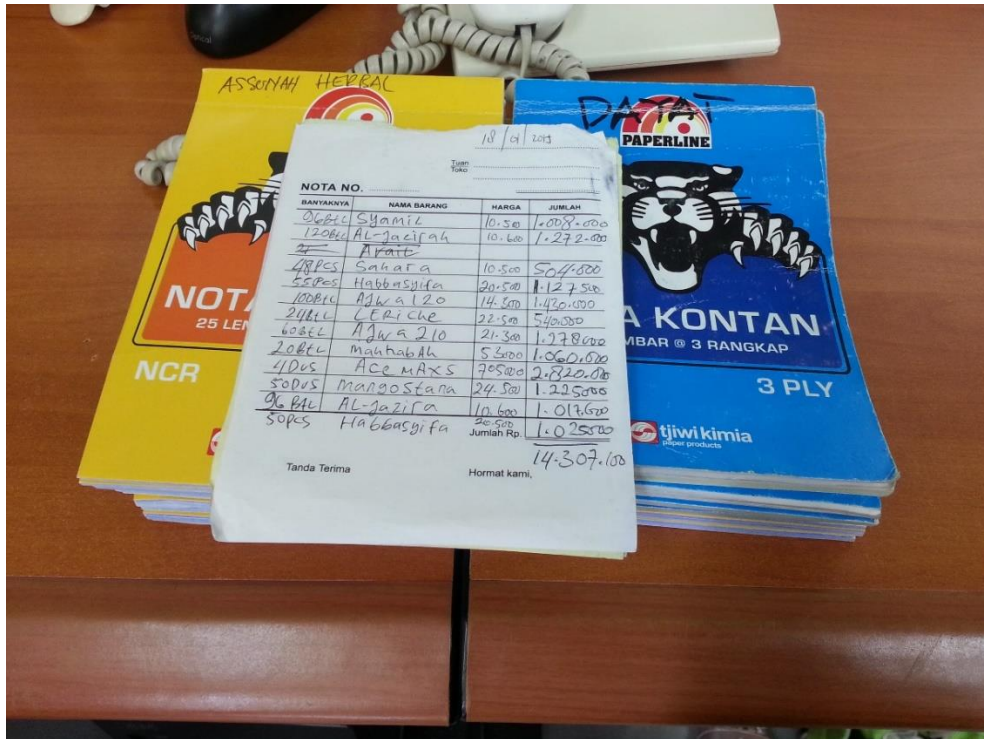 Optical
ASSUNAH HERBAL
DAYAT
PAPERLINE
NOTA
25 LEM
NCR
A KONTAN
MBAR @ 3 RANGKAP
3 PLY
tjiwi kimia
paper products
18/01/2019
Tuan
Toko
NOTA NO.
BANYAKNYA NAMA BARANG HARGA JUMLAH
96BtL Syamil 10.500 1.008.000
120BtL AL-Jazirah 10.600 1.272.000
Arait
48PCS Sahara 10.500 504.000
55PCS Habbasyifa 20.500 1.127500
100BtL AJwa 120 14.300 1.430.000
24BtL LERiche 22.500 540.000
60BtL AJwa 210 21.300 1.278000
20BtL mahhabAh 53000 1.060.000
4DUS ACe mAXS 705000 2.820.000
50DUS mangostana 24.500 1.225000
96 BtL AL-Jazira 10.600 1.017.600
50PCS Habbasyifa 20.500 1.025000
Jumlah Rp.
14.307.100
Tanda Terima Hormat kami,